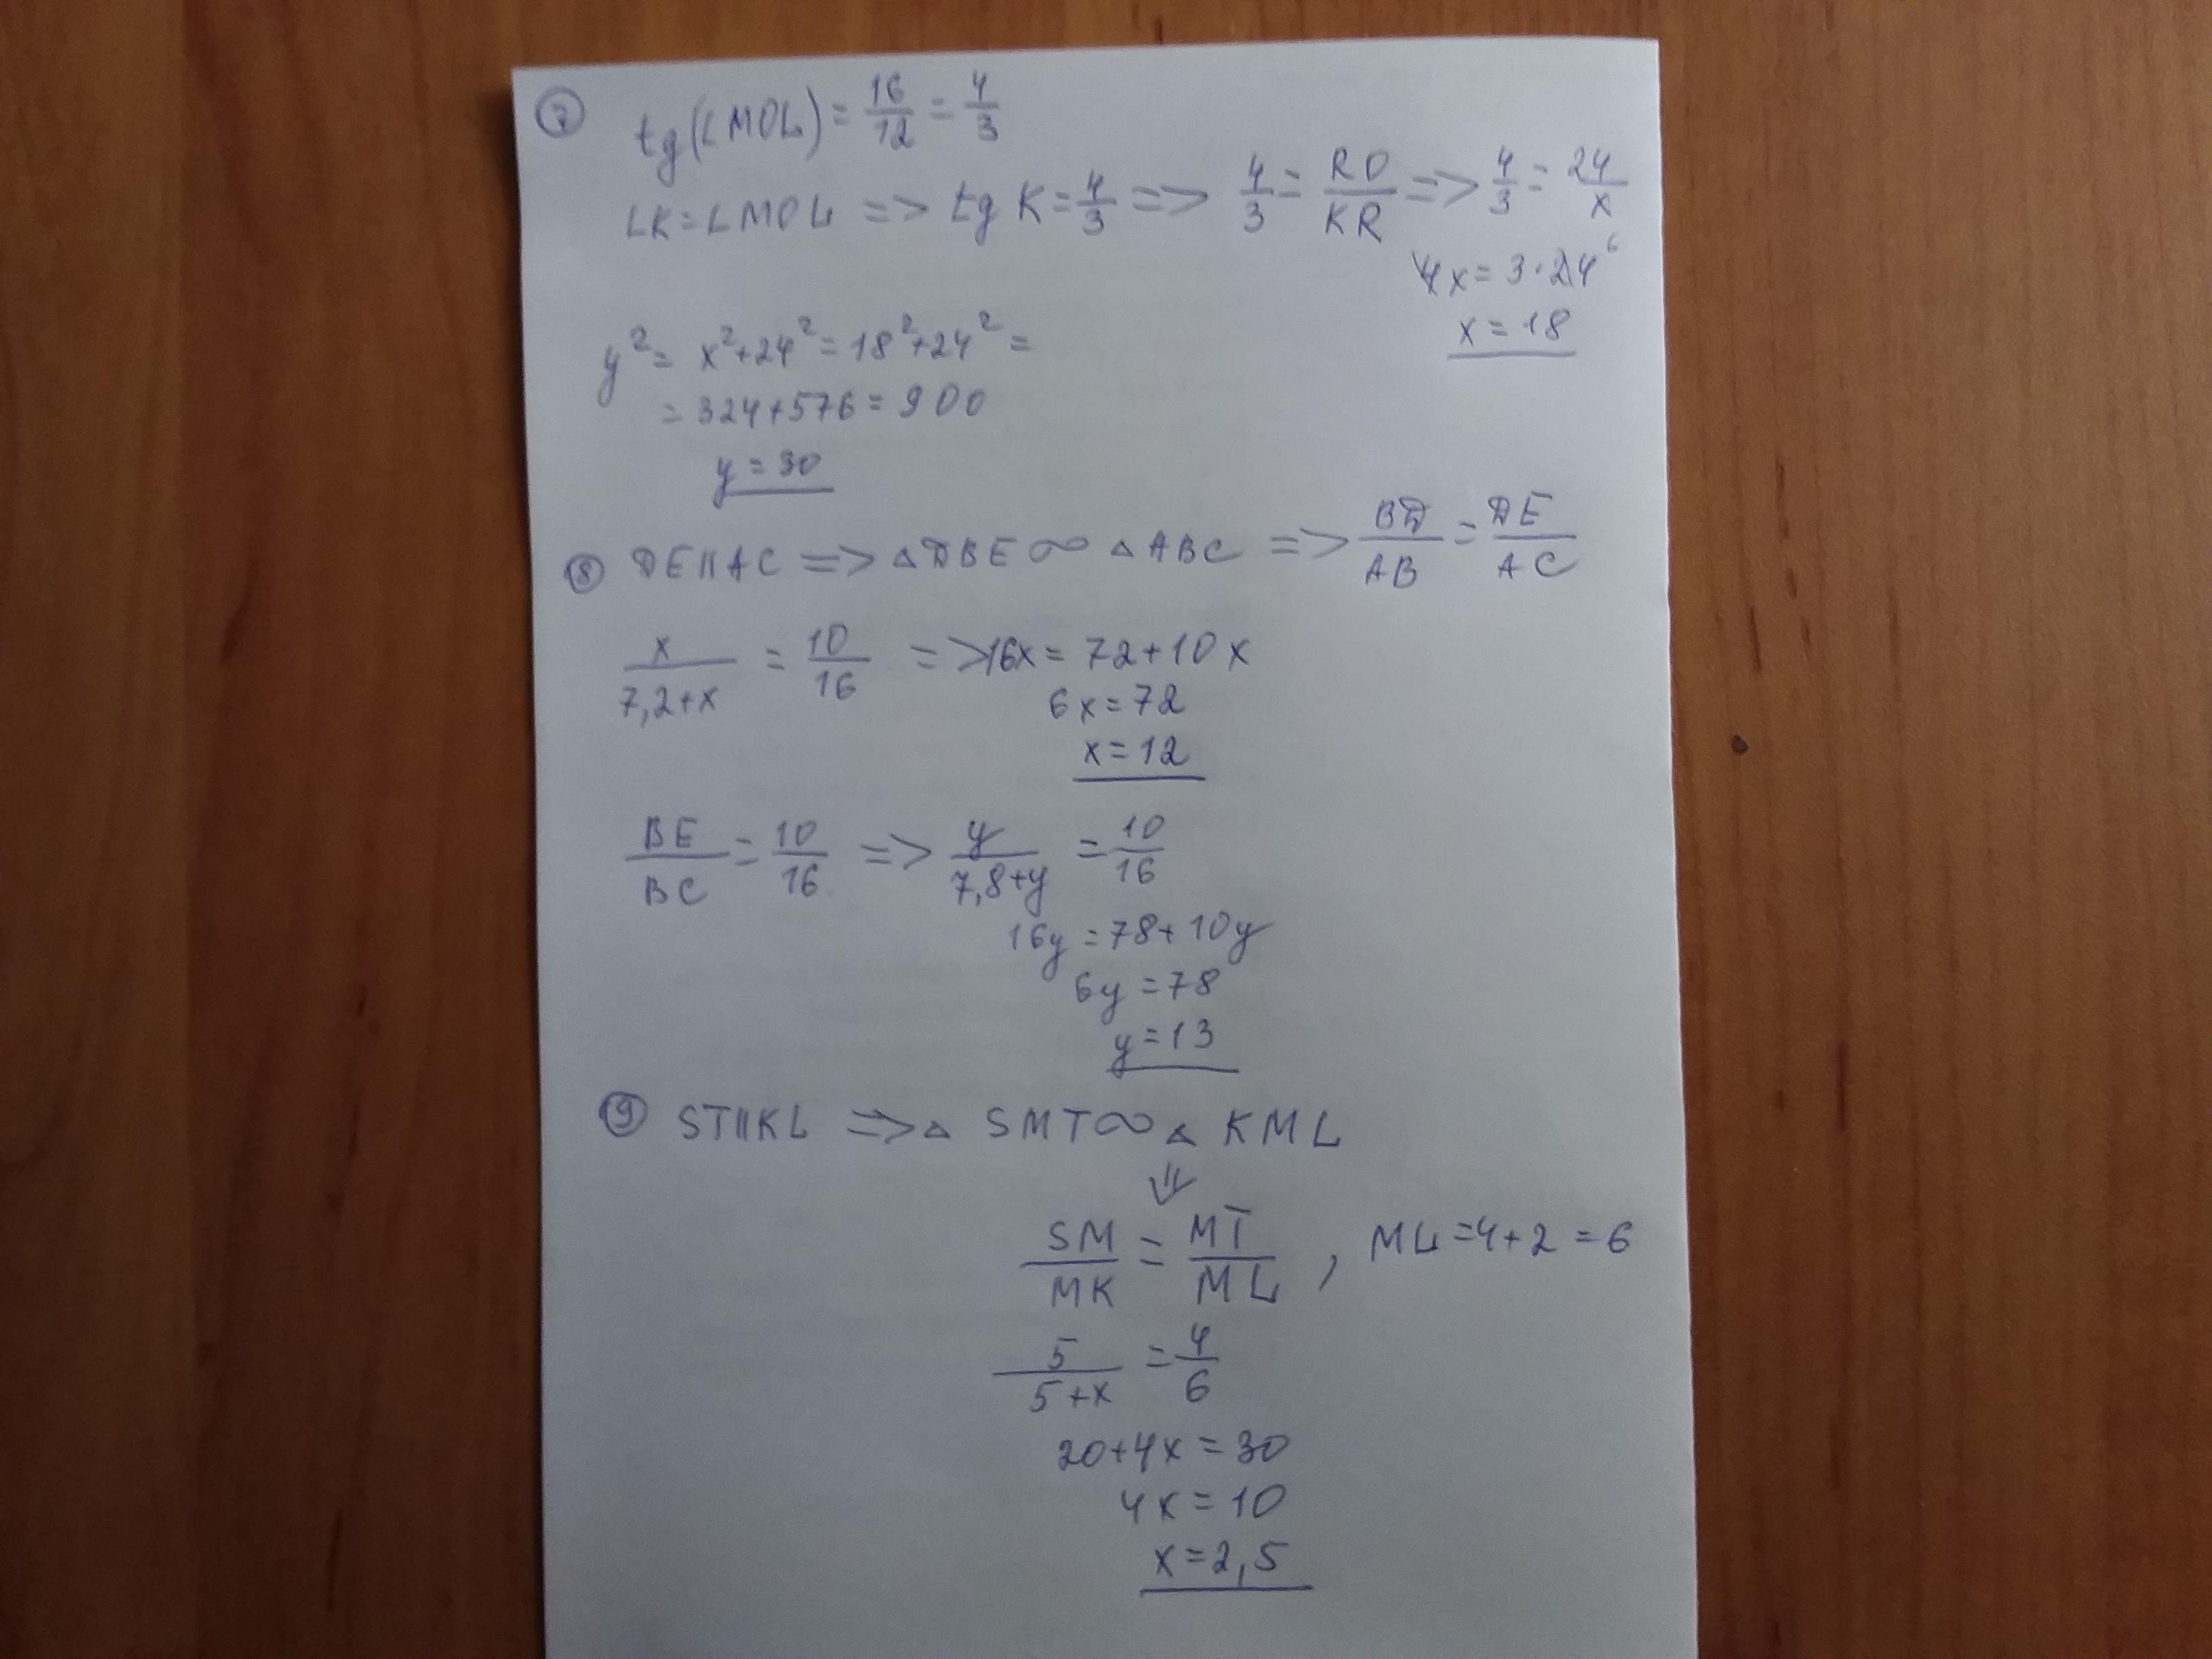 ⑦ tg(∠MOL) = 16/12 = 4/3
∠K = ∠MOL => tg K = 4/3 => 4/3 = RO/KR => 4/3 = 24/x
4x = 3·24 6
x = 18
y² = x² + 24² = 18² + 24² =
= 324 + 576 = 900
y = 30
⑧ DE || AC => △DBE ∞ △ABC => BD/AB = DE/AC
x/(7,2+x) = 10/16 => 16x = 72 + 10x
6x = 72
x = 12
BE/BC = 10/16 => y/(7,8+y) = 10/16
16y = 78 + 10y
6y = 78
y = 13
⑨ ST || KL => △ SMT ∞ △ KML
⇓
SM/MK = MT/ML , ML = 4 + 2 = 6
5/(5+x) = 4/6
20 + 4x = 30
4x = 10
x = 2,5